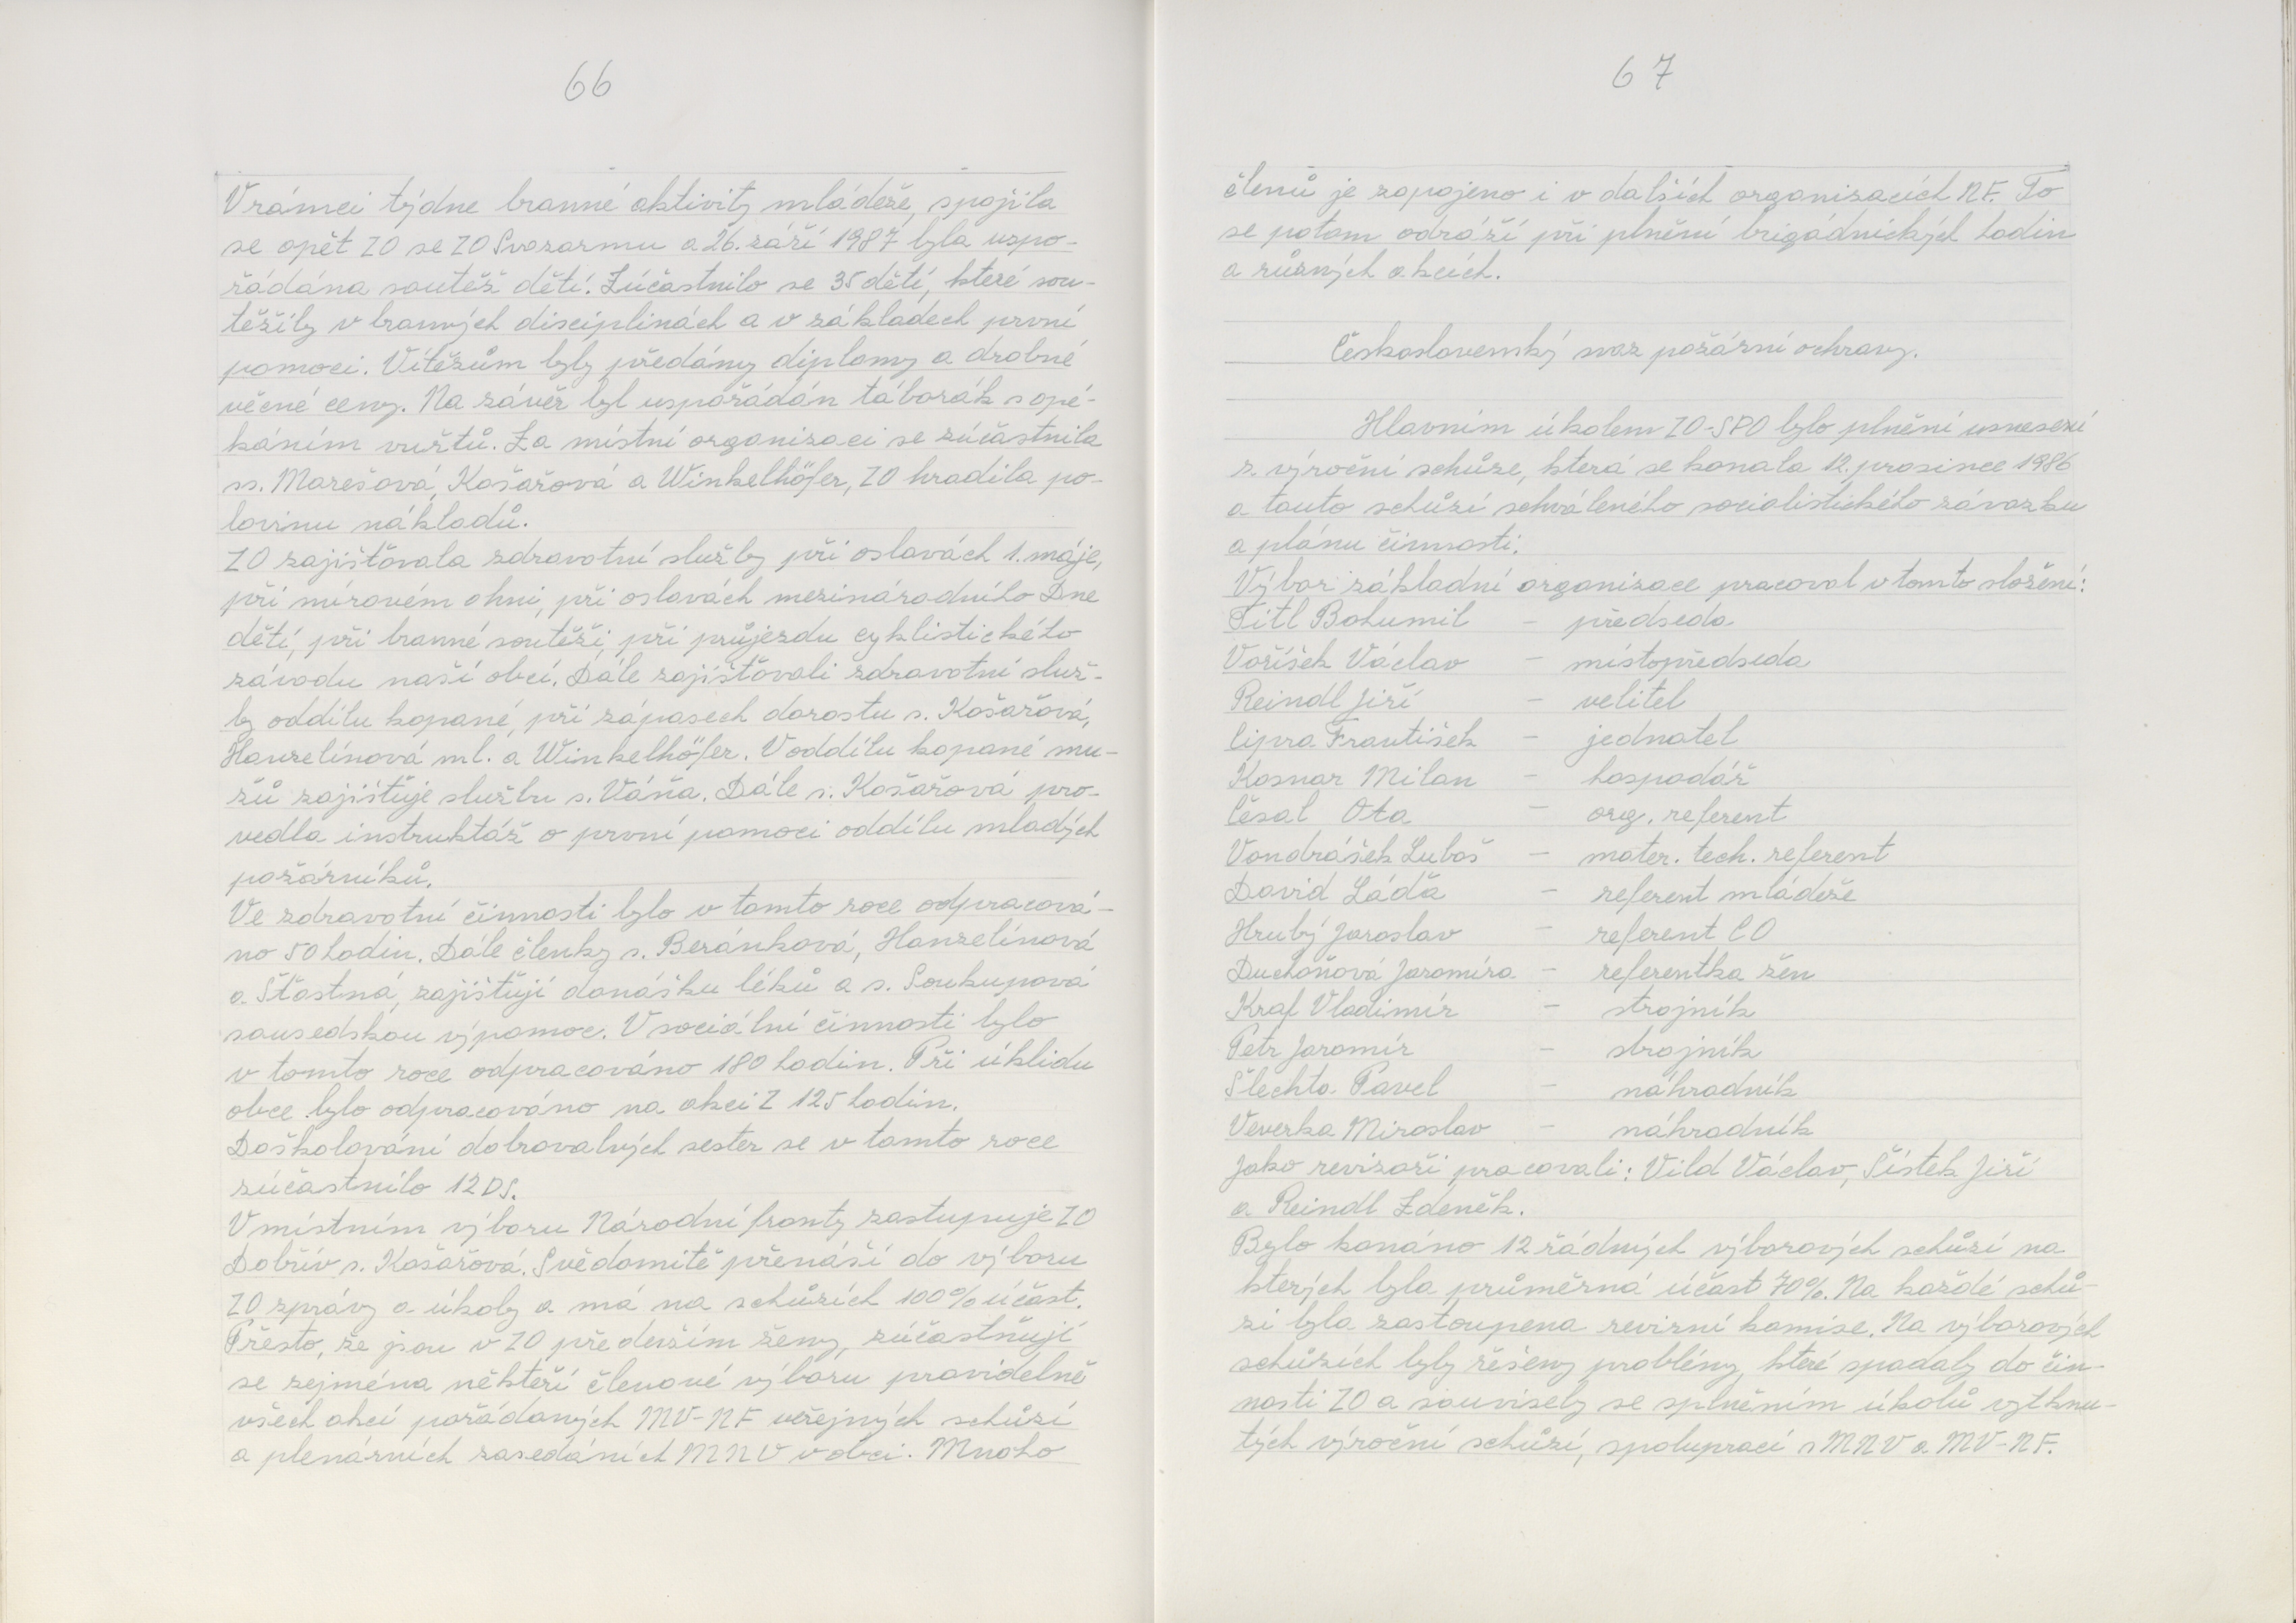 66
V rámci týdne branné aktivity mládeže, spojila
se opět ZO se ZO Svazarmu a 26. září 1987 byla uspo-
řádána soutěž dětí. Zúčastnilo se 35 dětí, které sou-
těžily v branných disciplinách a v základech první
pomoci. Vítězům byly předány diplomy a drobné
věcné ceny. Na závěr byl uspořádán táborák s opé-
káním vuřtů. Za místní organizaci se zúčastnila
ss. Marešová, Košařová a Winkelhöfer, ZO hradila po-
lovinu nákladů.
ZO zajišťovala zdravotní služby při oslavách 1. máje,
při mírovém ohni, při oslavách mezinárodního Dne
dětí, při branné soutěži, při průjezdu cyklistického
závodu naší obcí. Dále zajišťovali zdravotní služ-
by oddílu kopané, při zápasech dorostu s. Košařová,
Hanzelínová ml. a Winkelhöfer. V oddílu kopané mu-
žů zajišťuje službu s. Váňa. Dále s. Košařová pro-
vedla instruktáž o první pomoci oddílu mladých
požárníků.
Ve zdravotní činnosti bylo v tomto roce odpracová-
no 50 hodin. Dále členky s. Beránková, Hanzelínová
a Šťastná, zajištují donášku léků a s. Soukupová
sousedskou výpomoc. V sociální činnosti bylo
v tomto roce odpracováno 180 hodin. Při úklidu
obce bylo odpracováno na akci Z 125 hodin.
Doškolování dobrovalných sester se v tomto roce
zúčastnilo 12 DS.
V místním výboru Národní fronty zastupuje ZO
Dobřív s. Košařová. Svědomitě přenáší do výboru
ZO zprávy a úkoly a má na schůzích 100% účast.
Přesto, že jsou v ZO především ženy, zúčastňují
se zejména někteří členové výboru pravidelně
všech akcí pořádaných MV-NF veřejných schůzí
a plenárních zasedáních MNV v obci. Mnoho
67
členů je zapojeno i v dalších organizacích NF. To
se potom odráží při plnění brigádnických hodin
a různých akcích.
Československý svaz požární ochrany.
Hlavním úkolem ZO-SPO bylo plnění usnesení
z výroční schůze, která se konala 12. prosince 1986
a touto schůzí schváleného socialistického závazku
a plánu činnosti.
Výbor základní organizace pracoval v tomto složení:
Titl Bohumil - předseda
Voříšek Václav - místopředseda
Reindl Jiří - velitel
Cipra František - jednatel
Kosnar Milan - hospodář
Česal Ota - org. referent
Vondrášek Luboš - mater. tech. referent
David Láďa - referent mládeže
Hrubý Jaroslav - referent CO
Duchoňová Jaromíra - referentka žen
Kraf Vladimír - strojník
Petr Jaromír - strojník
Šlechta Pavel - náhradník
Veverka Miroslav - náhradník
Jako revizoři pracovali: Vild Václav, Šístek Jiří
a Reindl Zdeněk.
Bylo konáno 12 řádných výborových schůzí na
kterých byla průměrná účast 70%. Na každé schů-
zi byla zastoupena revizní komise. Na výborových
schůzích byly řešeny problémy, které spadaly do čin-
nosti ZO a souvisely se splněním úkolů vytknu-
tých výroční schůzí, spoluprací s MNV a MV-NF.